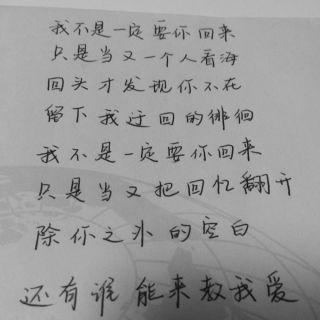 我不是一定要你回来
只是当又一个人看海
回头才发现你不在
留下我迂回的徘徊
我不是一定要你回来
只是当又把回忆翻开
除你之外的空白
还有谁能来教我爱